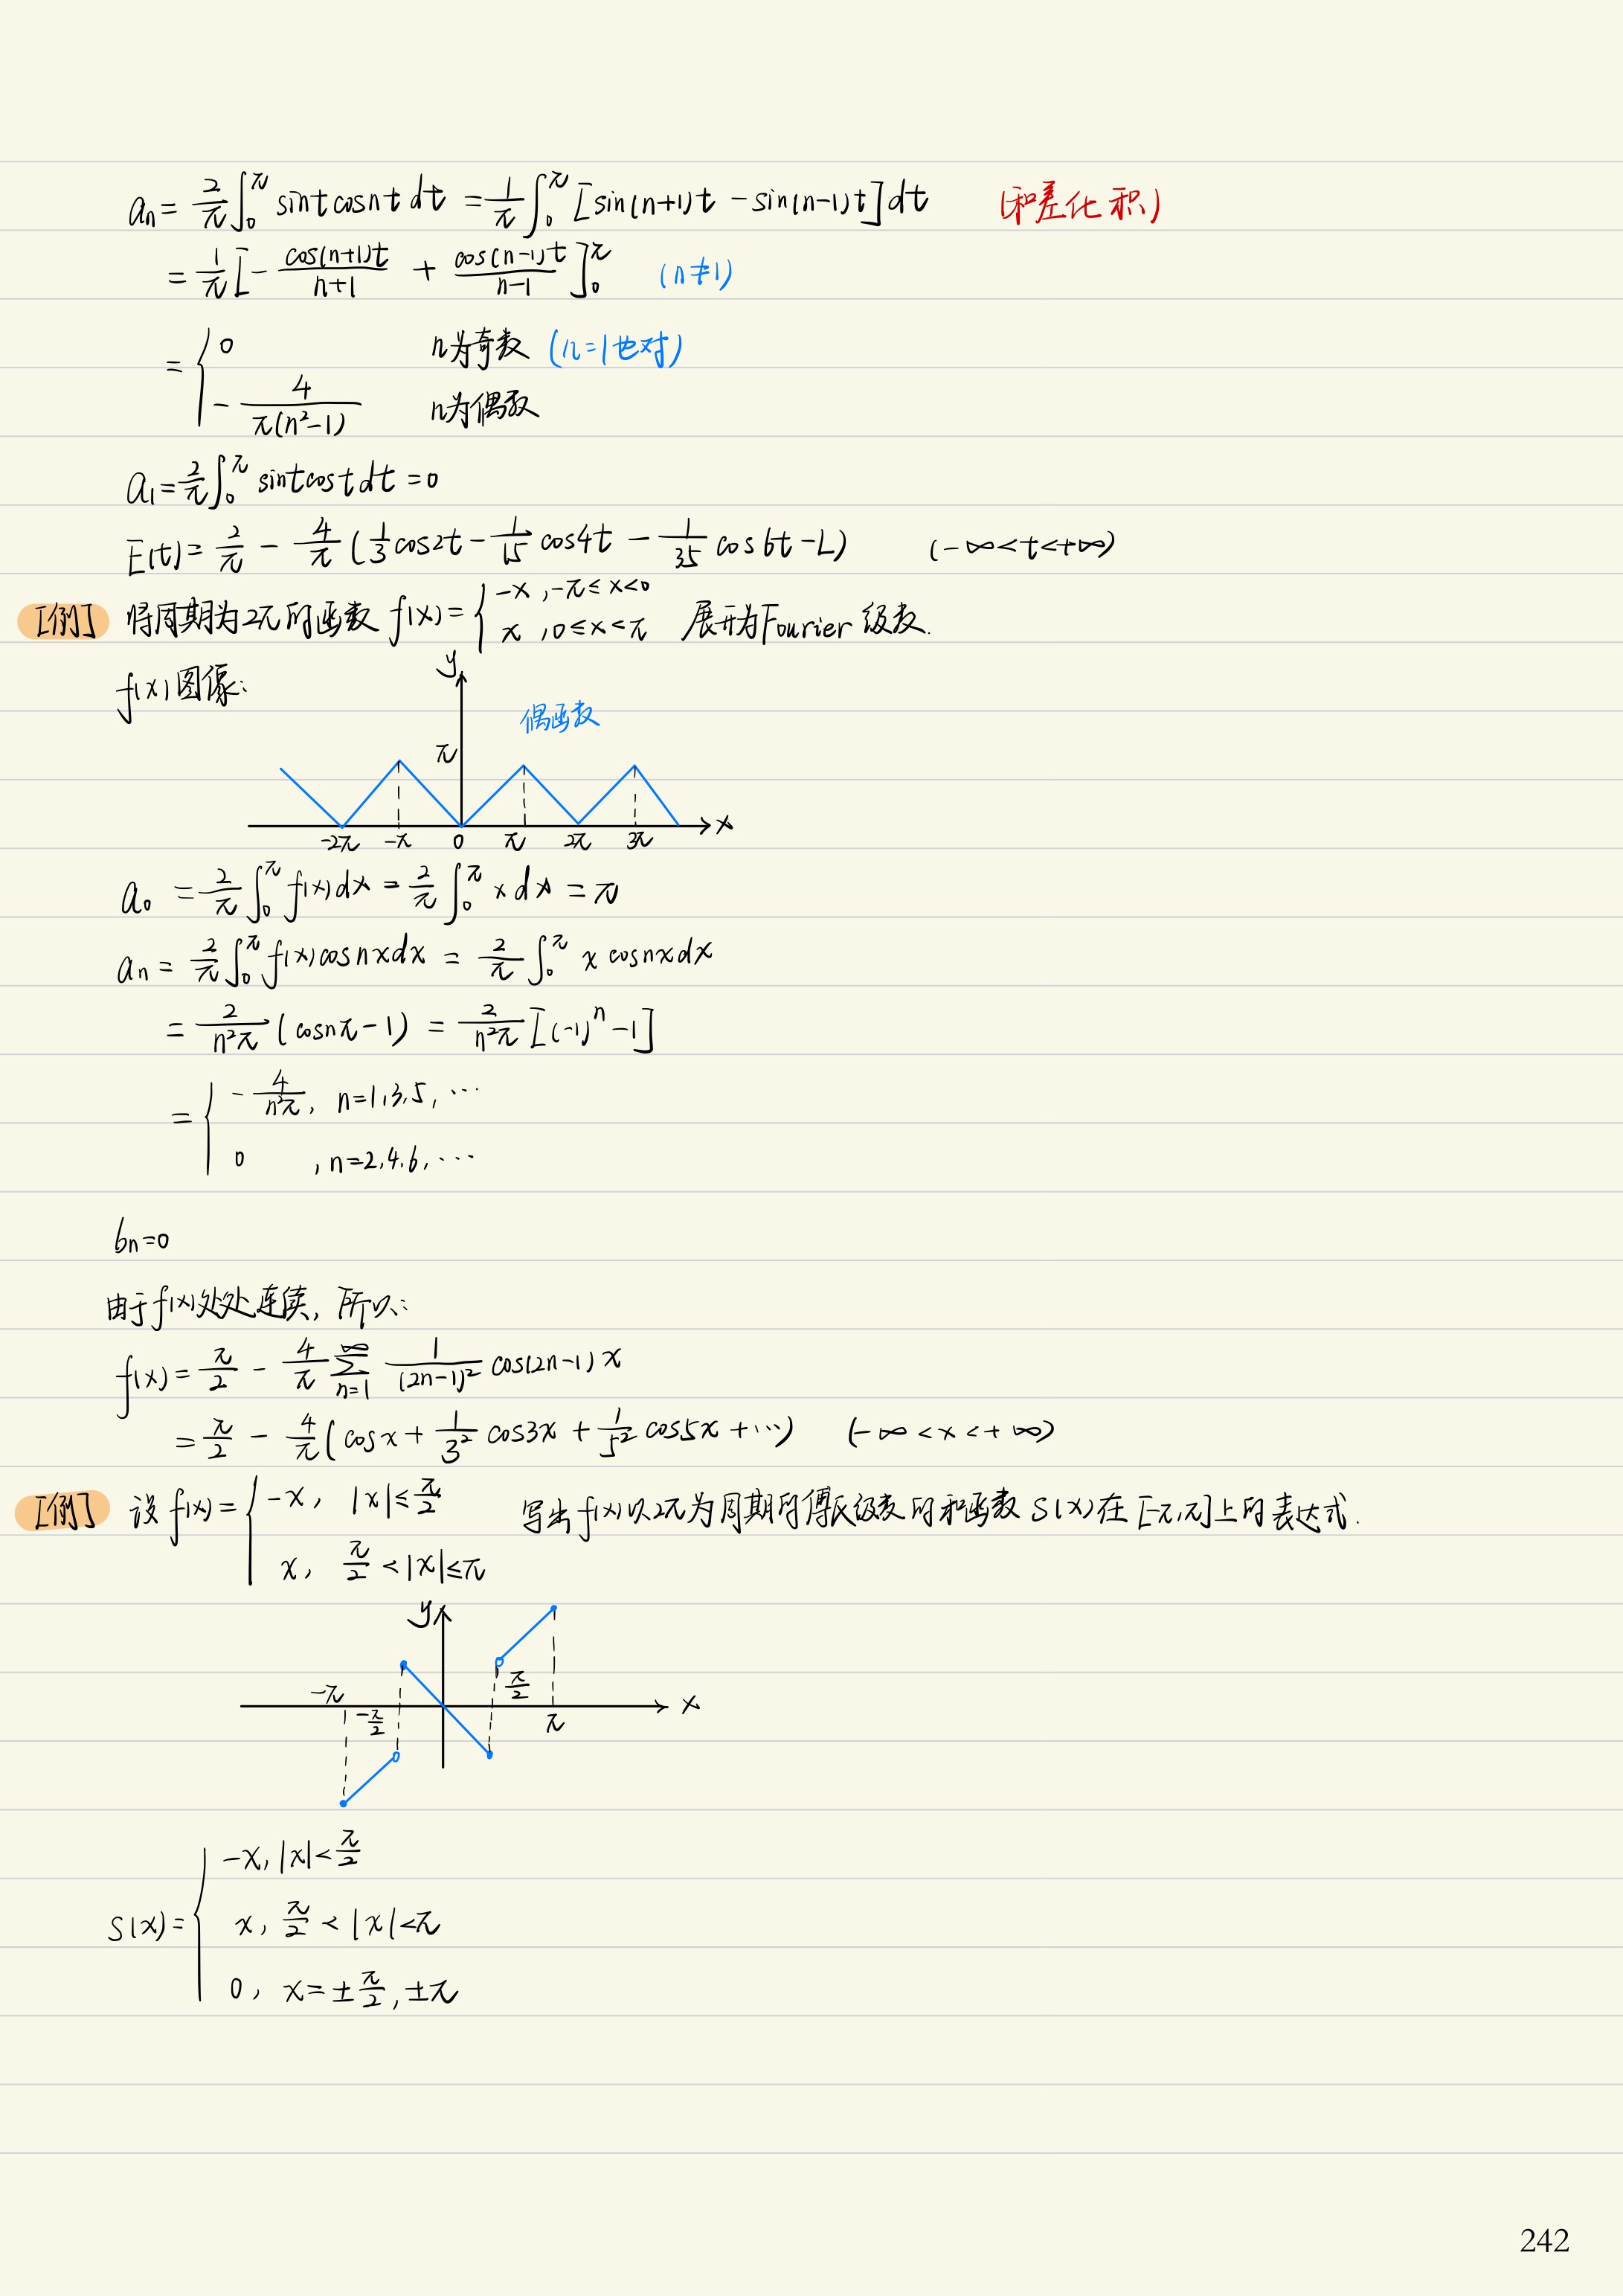 aₙ = 2/π ∫₀^π sint cosnt dt = 1/π ∫₀^π [sin(n+1)t − sin(n−1)t]dt (和差化积)
= 1/π [− cos(n+1)t/(n+1) + cos(n−1)t/(n−1)]₀^π (n≠1)
= { 0 n为奇数 (n=1也对)
− 4/(π(n²−1)) n为偶数
a₁ = 2/π ∫₀^π sintcost dt = 0
E(t) = 2/π − 4/π (1/3 cos2t − 1/15 cos4t − 1/35 cos6t − L) (−∞<t<+∞)
[例] 将周期为2π的函数 f(x) = { −x, −π≤x<0
x, 0≤x<π 展开为Fourier级数.
f(x)图像:
y
偶函数
π
x
−2π −π 0 π 2π 3π
a₀ = 2/π ∫₀^π f(x)dx = 2/π ∫₀^π x dx = π
aₙ = 2/π ∫₀^π f(x)cosnxdx = 2/π ∫₀^π x cosnxdx
= 2/(n²π) (cosnπ − 1) = 2/(n²π) [(−1)ⁿ − 1]
= { − 4/(n²π), n=1,3,5,⋯
0 , n=2,4,6,⋯
bₙ=0
由于f(x)处处连续, 所以:
f(x) = π/2 − 4/π ∑_{n=1}^∞ 1/(2n−1)² cos(2n−1)x
= π/2 − 4/π (cosx + 1/3² cos3x + 1/5² cos5x + ⋯) (−∞<x<+∞)
[例] 设 f(x) = { −x, |x|≤π/2 写出f(x)以2π为周期的傅氏级数的和函数S(x)在[−π,π]上的表达式.
x, π/2<|x|≤π
y
−π −π/2 π/2 π x
S(x) = { −x, |x|<π/2
x, π/2<|x|<π
0, x=±π/2, ±π
242